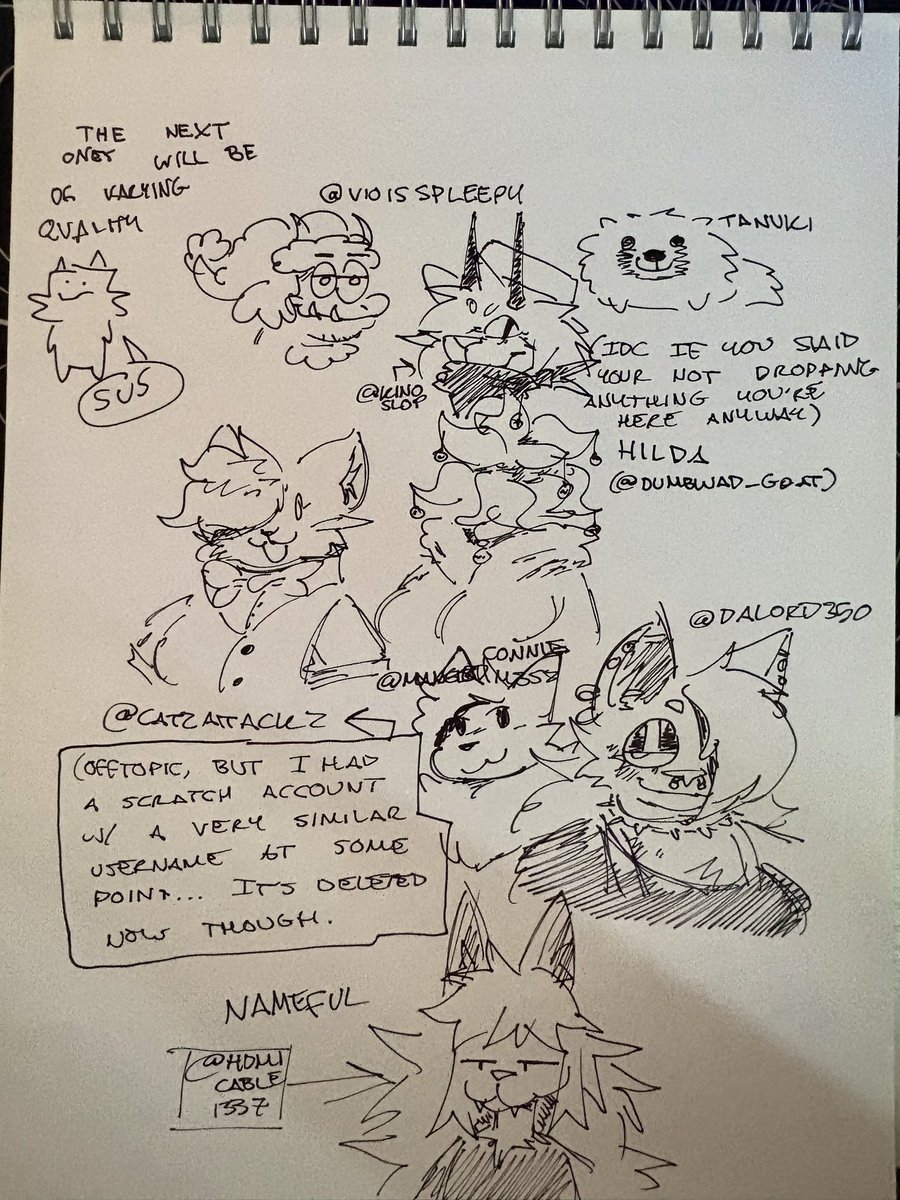 THE NEXT
ONES WILL BE
OF VARYING
QUALITY
SUS
@VIOISSPLEEPY
TANUKI
@KINO
SLOP
(IDC IF YOU SAID
YOUR NOT DROPPING
ANYTHING YOU'RE
HERE ANYWAY)
HILDA
(@DUMBWAD_GOAT)
@DALORD350
CONNIE
@CATZATTACKZ
(OFFTOPIC, BUT I HAD
A SCRATCH ACCOUNT
W/ A VERY SIMILAR
USERNAME AT SOME
POINT... IT'S DELETED
NOW THOUGH.
NAMEFUL
@HDMI
CABLE
1337